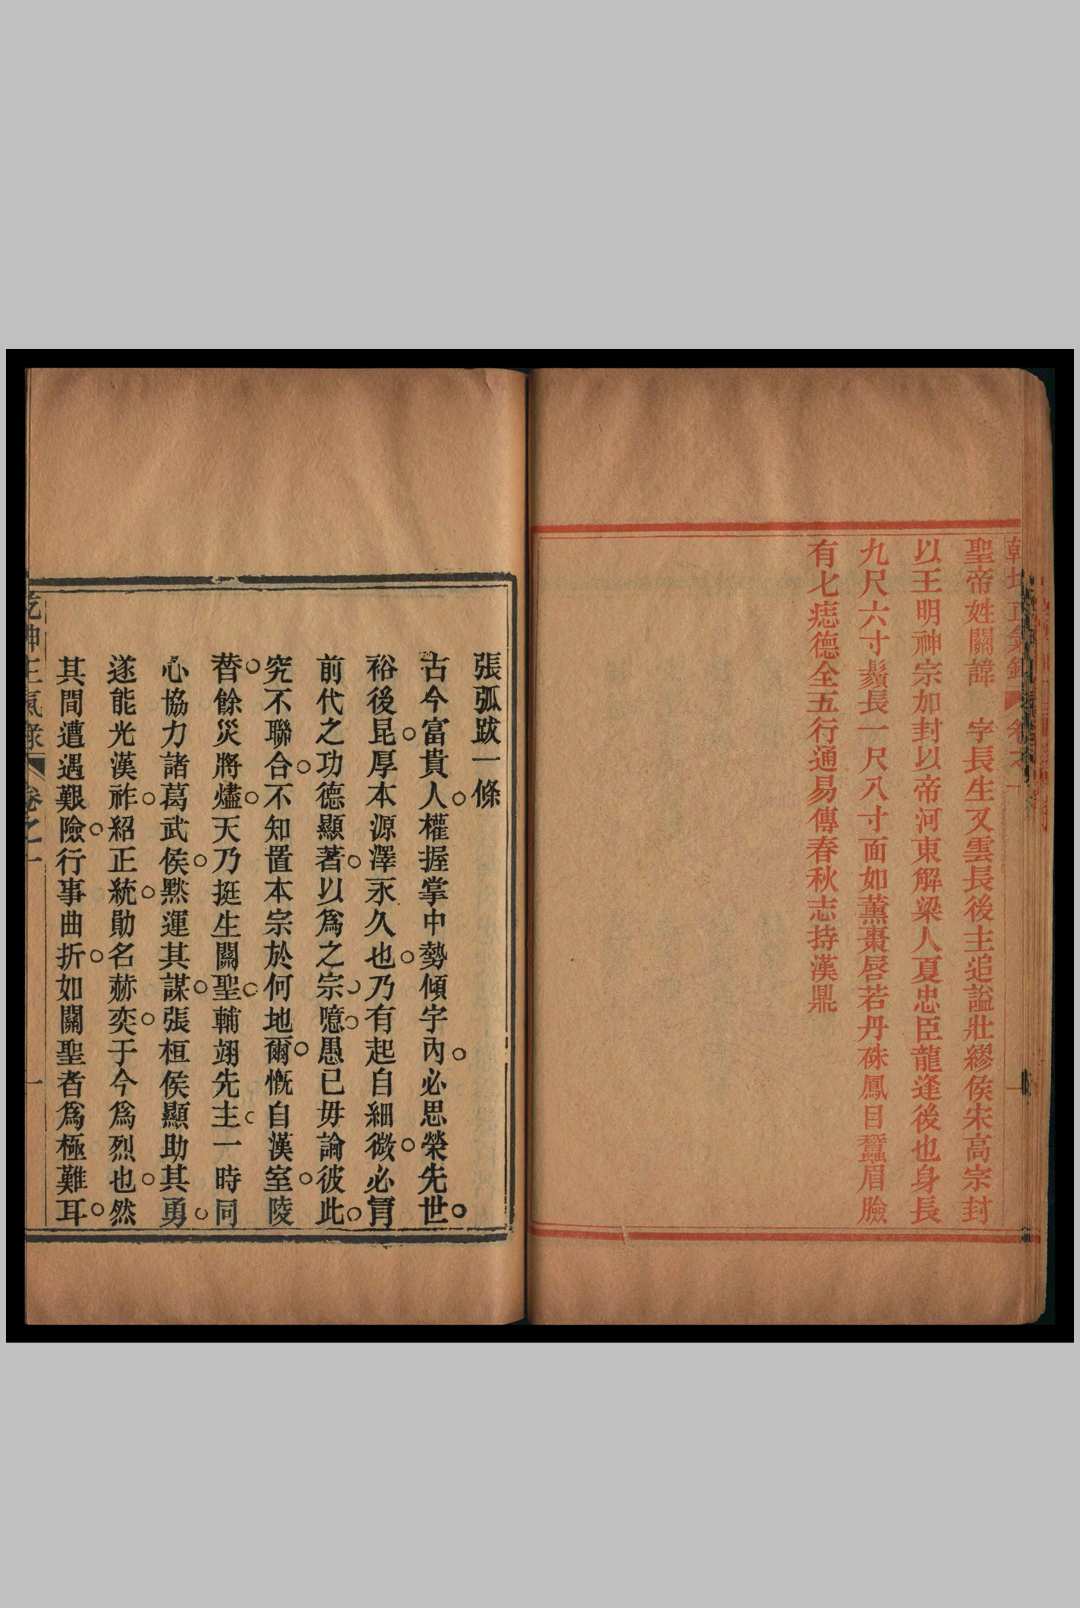 聖帝姓關諱　字長生又雲長後主追謚壯繆侯宋高宗封
以王明神宗加封以帝河東解梁人夏忠臣龍逢後也身長
九尺六寸鬚長一尺八寸面如薰棗唇若丹硃鳳目蠶眉臉
有七痣德全五行通易傳春秋志持漢鼎
張弧跋一條
古今富貴人權握掌中勢傾宇內必思榮先世
裕後昆厚本源澤永久也乃有起自細微必冐
前代之功德顯著以爲之宗噫愚已毋論彼此
究不聯合不知置本宗於何地爾慨自漢室陵
替餘災將燼天乃挺生關聖輔翊先主一時同
心協力諸葛武侯黙運其謀張桓侯顯助其勇
遂能光漢祚紹正統勛名赫奕于今爲烈也然
其間遭遇艱險行事曲折如關聖者爲極難耳
乾坤正氣錄　卷之一　一